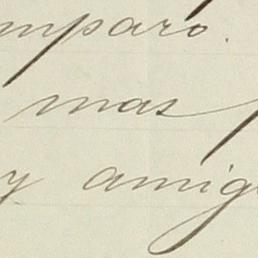 mparo.
mas
y amig